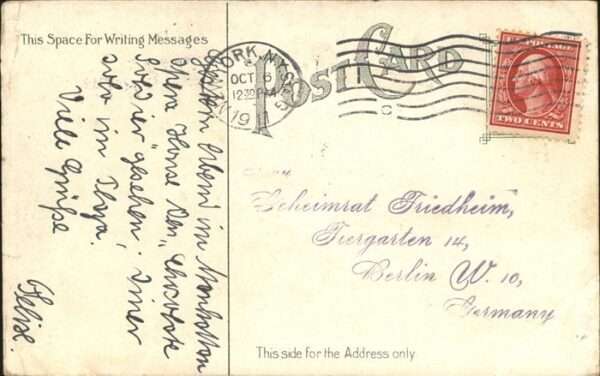 This Space For Writing Messages
POST CARD
YORK, N.Y.
OCT 6
12 30 PM
1911
TWO CENTS
Gestern Abend im Manhattan
Opera House den "Chocolate
Soldier" gesehen. Immer
solo im Theya.
Viele Grüße
Felix.
Herrn
Geheimrat Friedheim,
Tiergarten 14,
Berlin W. 10,
Germany
This side for the Address only